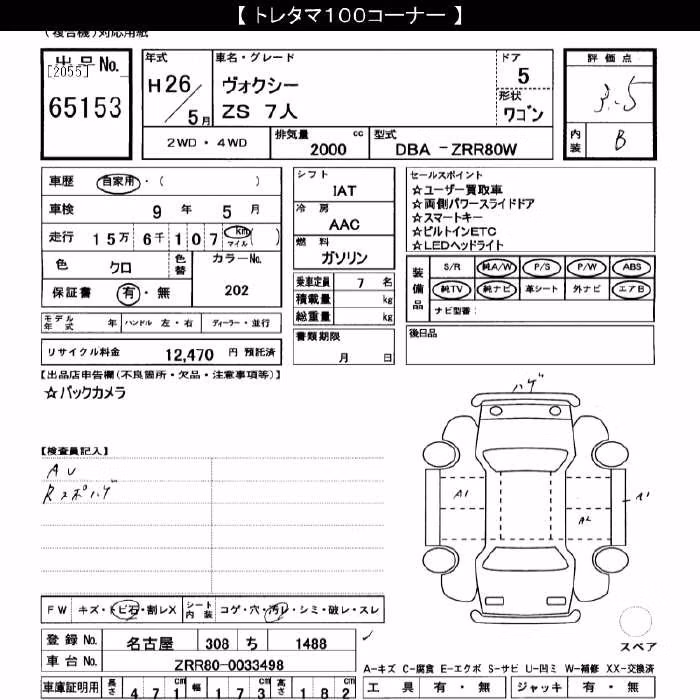 【 トレタマ100コーナー 】
(複合機)対応用紙
出品No.
[2055]
65153
年式
H26/5月
車名・グレード
ヴォクシー
ZS 7人
ドア
5
形状
ワゴン
評価点
3.5
内装
B
2WD・4WD
排気量 2000 cc
型式 DBA -ZRR80W
車歴 自家用・( )
車検 9年 5月
走行 15万 6千107 km マイル ( )
色 クロ
色替
カラーNo. 202
保証書 有・無
シフト
IAT
冷房
AAC
燃料
ガソリン
乗車定員 7 名
積載量 kg
総重量 kg
書類期限
月 日
セールスポイント
☆ユーザー買取車
☆両側パワースライドドア
☆スマートキー
☆ビルトインETC
☆LEDヘッドライト
装備品
S/R 純A/W P/S P/W ABS
純TV 純ナビ 革シート 外ナビ エアB
ナビ型番:
後日品
モデル年式 年 ハンドル 左・右 ディーラー・並行
リサイクル料金 12,470 円 預託済
【出品店申告欄(不良箇所・欠品・注意事項等)】
☆バックカメラ
【検査員記入】
AU
Rスポハゲ
ハゲ
A1
A2
A1
FW キズ・トビ石・割レX
シート内装 コゲ・穴・汚レ・シミ・破レ・スレ
登録No. 名古屋 308 ち 1488
車台No. ZRR80-0033498
スペア
A-キズ C-腐食 E-エクボ S-サビ U-凹ミ W-補修 XX-交換済
車庫証明用 長さ 471cm 幅 173cm 高さ 182cm
工具 有・無 ジャッキ 有・無